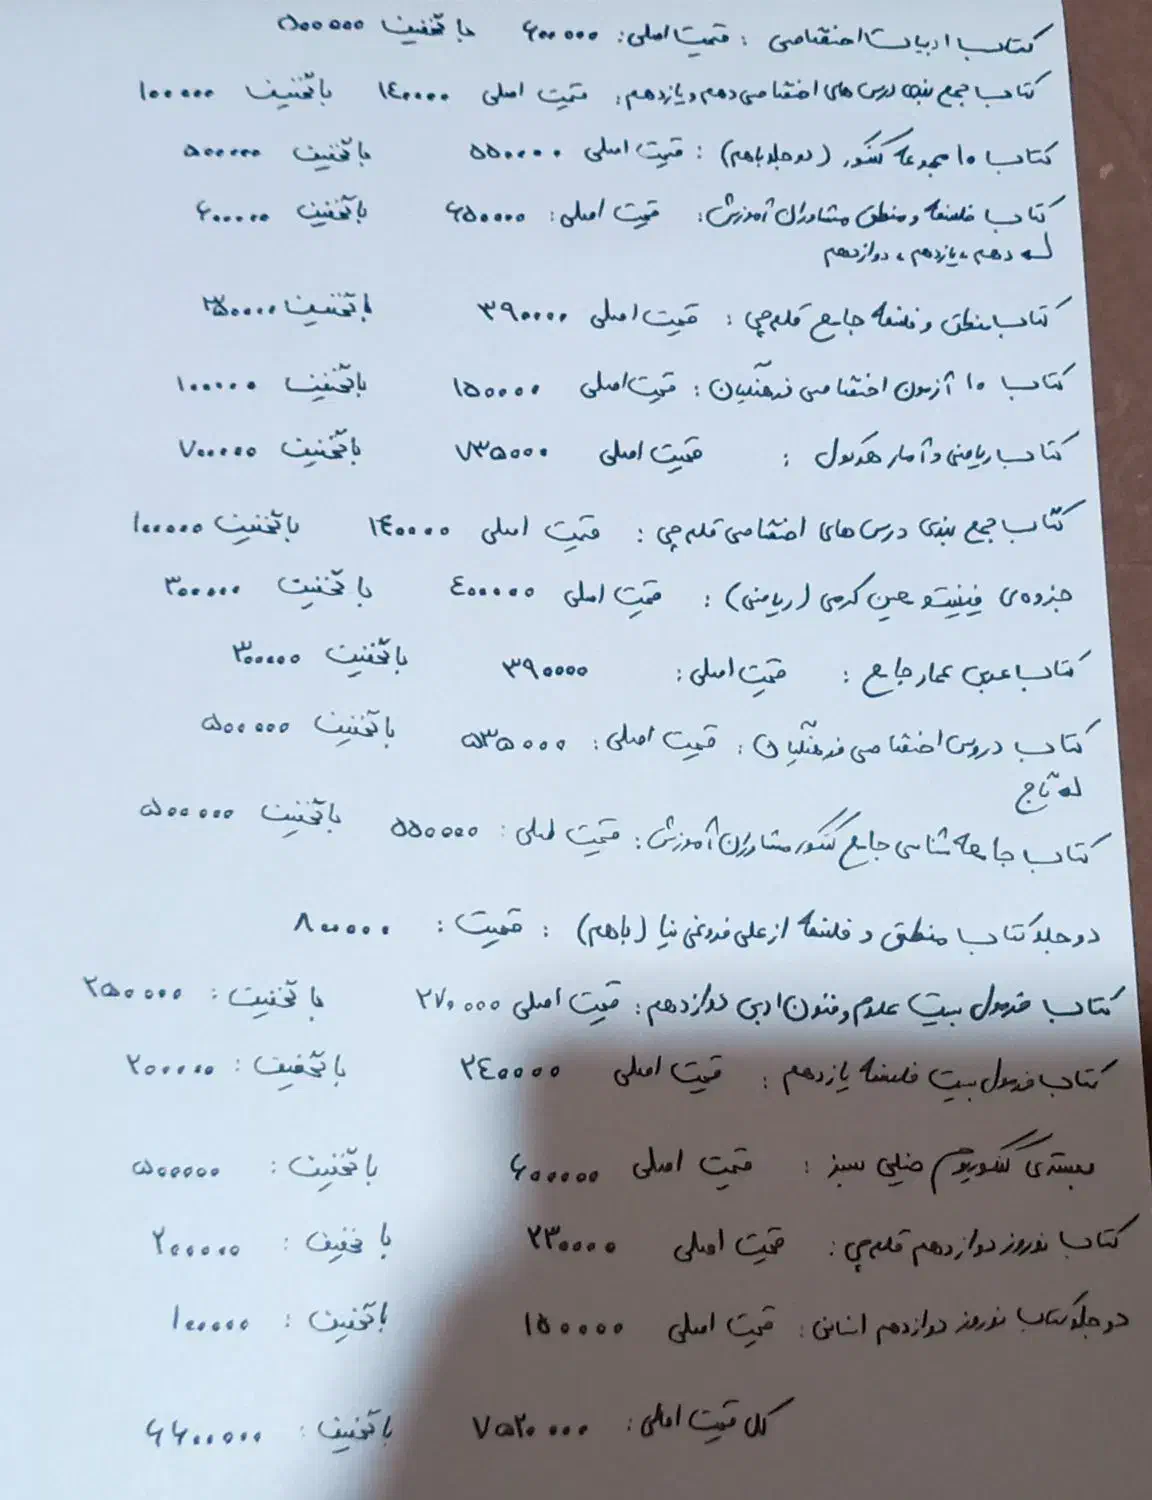 کتاب ادبیات اختصاصی : قیمت اصلی: ۶۰۰۰۰۰ با تخفیف ۵۰۰۰۰۰
کتاب جمع بندی درس های اختصاصی دهم و یازدهم: قیمت اصلی ۱۴۰۰۰۰ با تخفیف ۱۰۰۰۰۰
کتاب ۱۰ مجموعه کنکور (دو جلد باهم) : قیمت اصلی ۵۵۰۰۰۰ با تخفیف ۵۰۰۰۰۰
کتاب فلسفه و منطق مشاوران آموزش: قیمت اصلی: ۶۵۰۰۰۰ با تخفیف ۶۰۰۰۰۰
دهم، یازدهم، دوازدهم
کتاب منطق و فلسفه جامع قلم چی : قیمت اصلی ۳۹۰۰۰۰ با تخفیف ۳۵۰۰۰۰
کتاب ۱۰ آزمون اختصاصی فرهنگیان : قیمت اصلی ۱۵۰۰۰۰ با تخفیف ۱۰۰۰۰۰
کتاب ریاضی و آمار : قیمت اصلی ۷۳۵۰۰۰ با تخفیف ۷۰۰۰۰۰
کتاب جمع بندی درس های اختصاصی قلم چی : قیمت اصلی ۱۴۰۰۰۰ با تخفیف ۱۰۰۰۰۰
جزوه ی فینیتو معین کرمی (ریاضی) : قیمت اصلی ۴۰۰۰۰۰ با تخفیف ۳۰۰۰۰۰
کتاب عربی عمار جامع : قیمت اصلی: ۳۹۰۰۰۰ با تخفیف ۳۰۰۰۰۰
کتاب دروس اختصاصی فرهنگیان : قیمت اصلی: ۵۳۵۰۰۰ با تخفیف ۵۰۰۰۰۰
تاج
کتاب جامعه شناسی جامع کنکور مشاوران آموزش: قیمت اصلی: ۵۵۰۰۰۰ با تخفیف ۵۰۰۰۰۰
دو جلد کتاب منطق و فلسفه از علی فروغی نیا (باهم) : قیمت : ۸۰۰۰۰۰
کتاب فرمول بیست علوم و فنون ادبی دوازدهم: قیمت اصلی ۲۷۰۰۰۰ با تخفیف : ۲۵۰۰۰۰
کتاب فرمول بیست فلسفه یازدهم : قیمت اصلی ۲۴۰۰۰۰ با تخفیف : ۲۰۰۰۰۰
بسته ی کنکوریوم خیلی سبز : قیمت اصلی ۶۰۰۰۰۰ با تخفیف : ۵۰۰۰۰۰
کتاب نوروز دوازدهم قلم چی : قیمت اصلی ۲۳۰۰۰۰ با تخفیف : ۲۰۰۰۰۰
دو جلد کتاب نوروز دوازدهم انسانی : قیمت اصلی ۱۵۰۰۰۰ با تخفیف : ۱۰۰۰۰۰
کل قیمت اصلی: ۷۵۲۰۰۰۰ با تخفیف : ۶۶۰۰۰۰۰